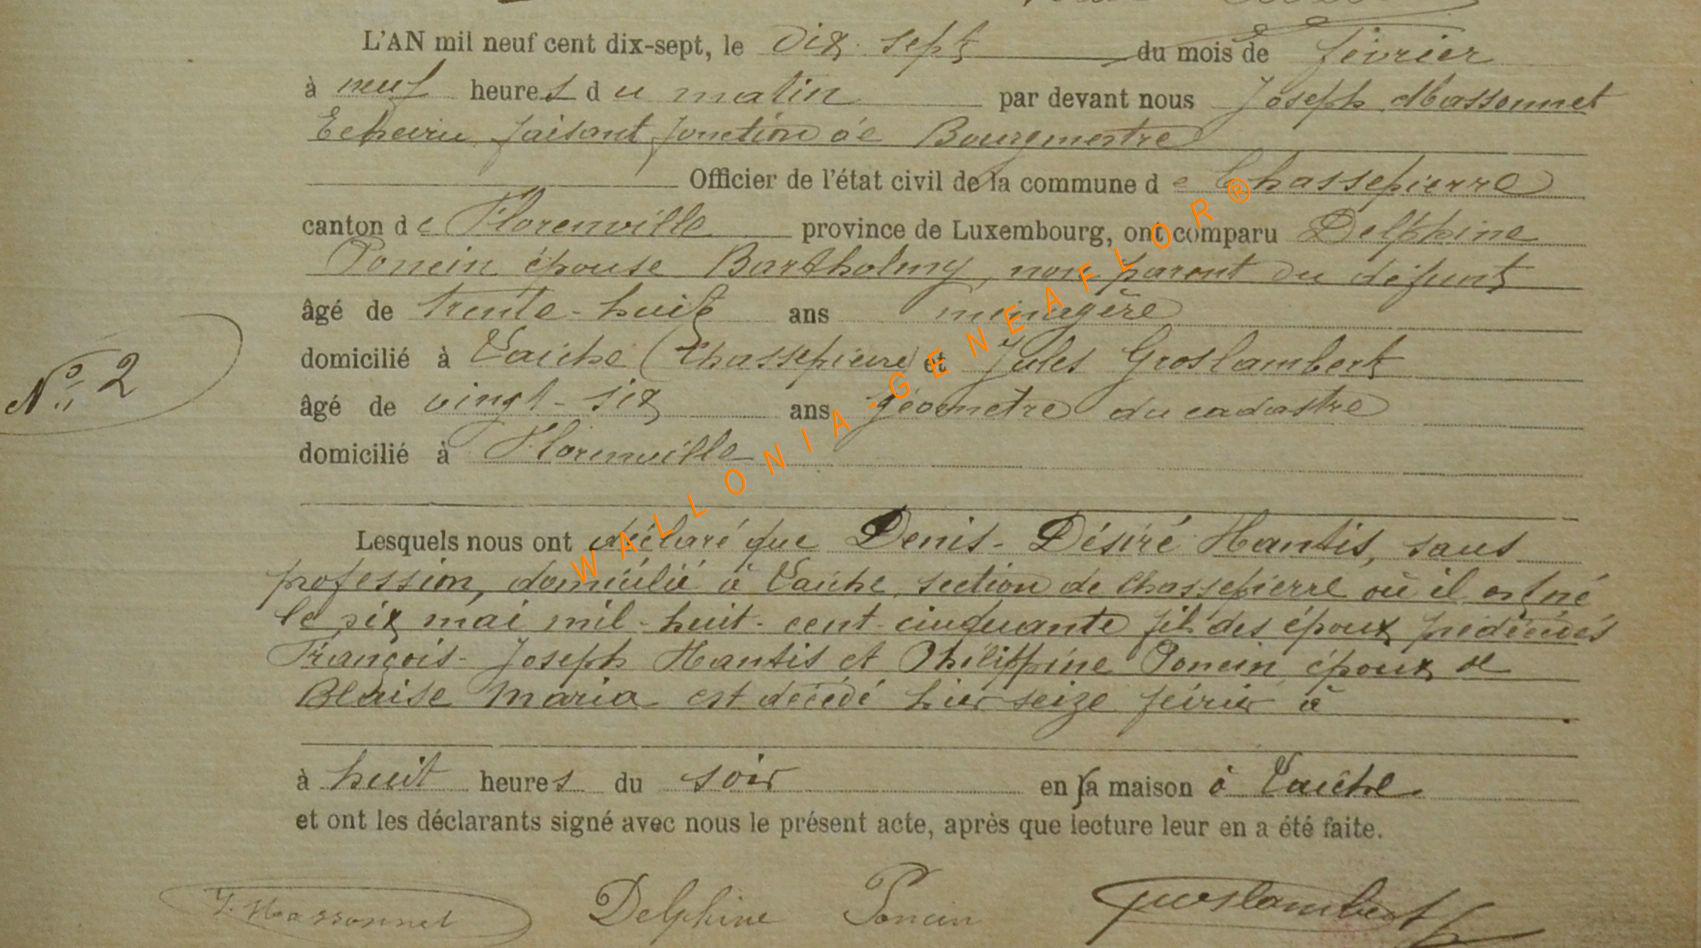 L'AN mil neuf cent dix-sept, le dix-sept du mois de février
à neuf heures du matin par devant nous Joseph Massonnet
Echevin faisant fonction de Bourgmestre
Officier de l'état civil de la commune de Chassepierre
canton de Florenville province de Luxembourg, ont comparu Delphine
Poncin épouse Bartholmy, non parent du défunt
âgé de trente-huit ans ménagère
domicilié à Laiche (Chassepierre) et Jules Groslambert
N° 2
âgé de vingt-six ans géomètre du cadastre
domicilié à Florenville
Lesquels nous ont déclaré que Denis-Désiré Hantis, sans
profession, domicilié à Laiche, section de Chassepierre où il est né
le six mai mil-huit-cent cinquante fils des époux prédécédés
François-Joseph Hantis et Philippine Poncin, époux de
Blaise Maria est décédé hier seize février à
à huit heures du soir en sa maison à Laiche
et ont les déclarants signé avec nous le présent acte, après que lecture leur en a été faite.
J. Massonnet Delphine Poncin Groslambert
WALLONIA-GENEAFLOR®